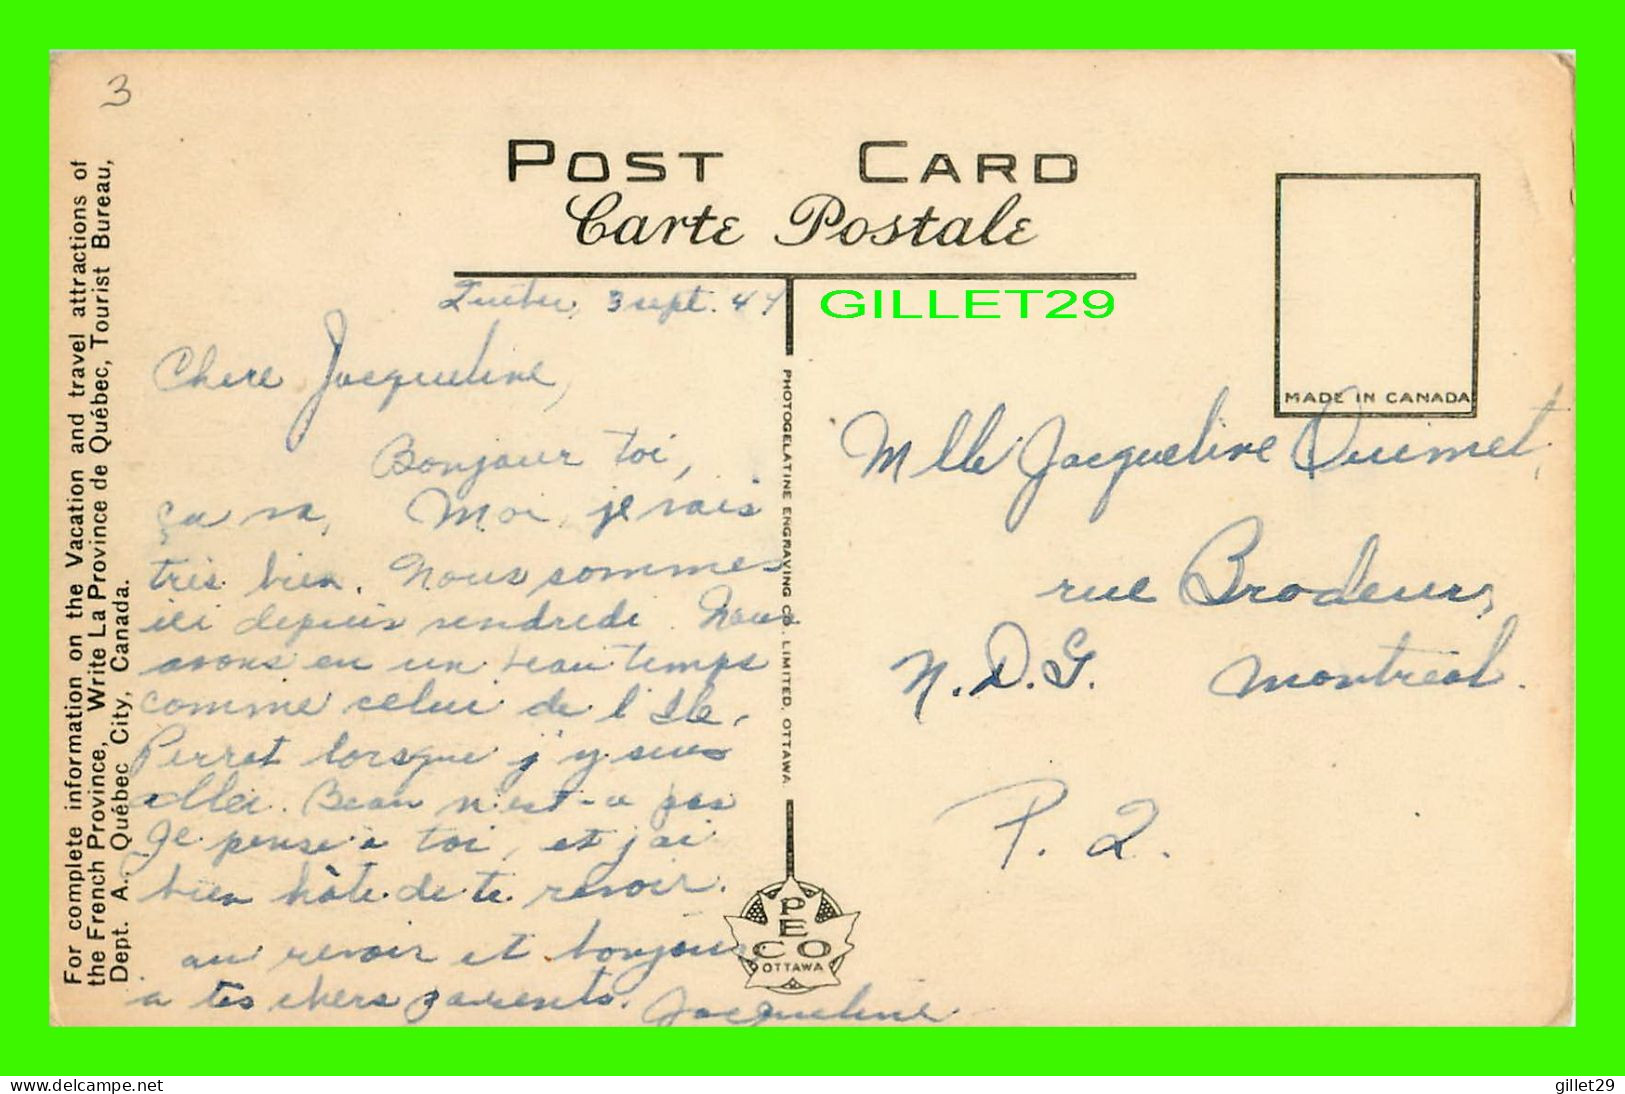 3
POST CARD
Carte Postale
GILLET29
MADE IN CANADA
For complete information on the Vacation and travel attractions of
the French Province, Write La Province de Québec, Tourist Bureau,
Dept. A., Québec City, Canada.
PHOTOGELATINE ENGRAVING CO. LIMITED, OTTAWA.
PECO
OTTAWA
Québec, 3 sept. 44
Chere Jacqueline,
Bonjour toi,
ça va, Moi, je vais
très bien. Nous sommes
ici depuis vendredi. Nous
avons eu un beau temps
comme celui de l'Ile
Perrot lorsque j'y suis
allée. Beau n'est-ce pas
Je pense à toi, et j'ai
bien hâte de te revoir.
au revoir et bonjour
à tes chers parents. Jacqueline
Mlle Jacqueline Ouimet,
rue Brodeur,
N.D.G. Montréal.
P. 2.
www.delcampe.net
gillet29